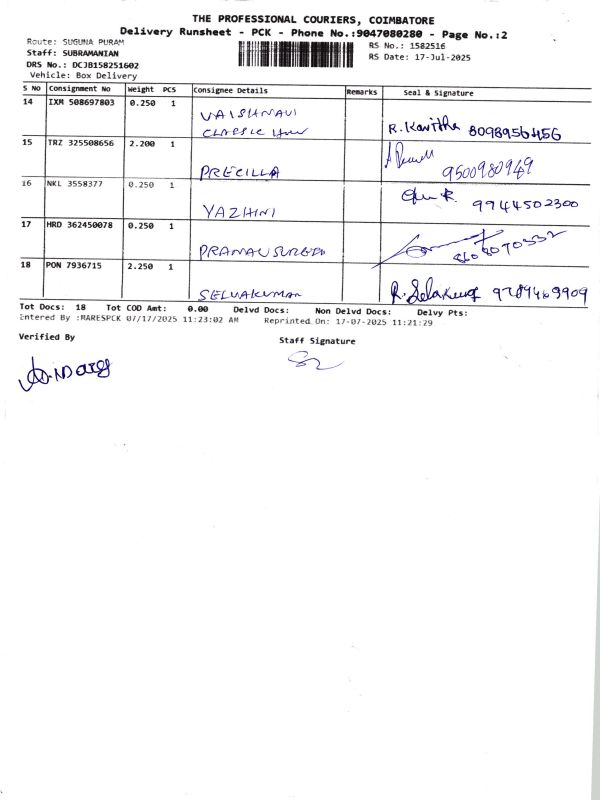 THE PROFESSIONAL COURIERS, COIMBATORE
Delivery Runsheet - PCK - Phone No.:9047080280 - Page No.:2
Route: SUGUNA PURAM
RS No.: 1582516
Staff: SUBRAMANIAN
RS Date: 17-Jul-2025
DRS No.: DCJB158251602
Vehicle: Box Delivery
S No Consignment No Weight PCS Consignee Details Remarks Seal & Signature
14 IXM 508697803 0.250 1 VAISHNAVI
CLASSIC R. Kavitha 8098956456
15 TRZ 325508656 2.200 1
PRECILLA 9500980949
16 NKL 3558377 0.250 1
YAZHINI 9944502300
17 HRD 362450078 0.250 1
18 PON 7936715 2.250 1
SELVAKUMAR 9789469909
Tot Docs: 18 Tot COD Amt: 0.00 Delvd Docs: Non Delvd Docs: Delvy Pts:
Entered By :MARESPCK 07/17/2025 11:23:02 AM Reprinted On: 17-07-2025 11:21:29
Verified By
Staff Signature